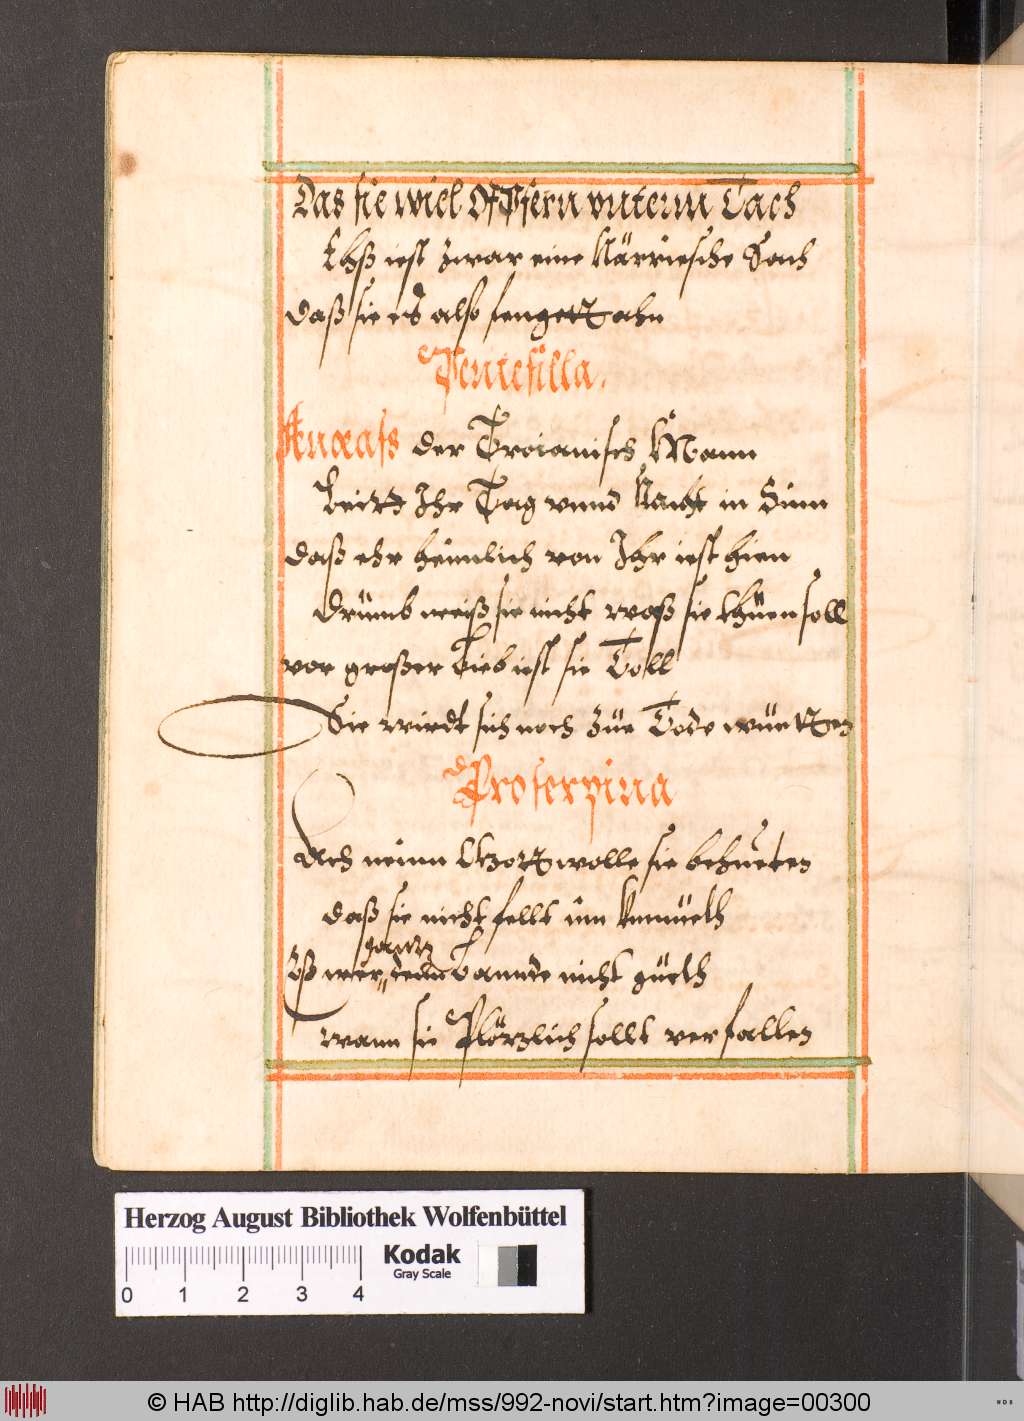 Das sie wiel Opffern vnterm Tach
Ehß iest zwar eine Närriesche Sach
daß sie es also fengett ahn
Pentesilla.
Anæass der Troianisch Mann
Leitt Ihr Tag vnnd Nacht in Sinn
daß ehr heimlich von Ihr iest hien
drümb weiß sie nicht waß sie thüen soll
vor großer Lieb iest sie Toll
Sie wirdt sich noch züe Tode wüetten
Proserpina
Ach neinn Gott wolle sie behueten
daß sie nicht fellt inn Vnmüeth
gantz
Eß wer denn Lannde nicht güeth
wann sie Plötzlich sollt verfallen
Herzog August Bibliothek Wolfenbüttel
Kodak
Gray Scale
0 1 2 3 4
© HAB http://diglib.hab.de/mss/992-novi/start.htm?image=00300